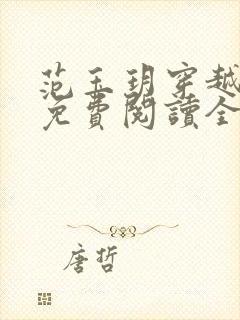 范玉玥穿越
免費閱讀全
唐哲